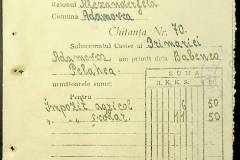 Raionul Alexanderfeld
Comuna Adamovca
Chitanța Nr. 70.
Subsemnatul Casier al Primariei
Adamovca am primit dela Babenco
Pelahea
urmatoarele sume:
SUMA
R.K.K.S.
Pentru
Impozit agricol 6 50
" " școlar 50